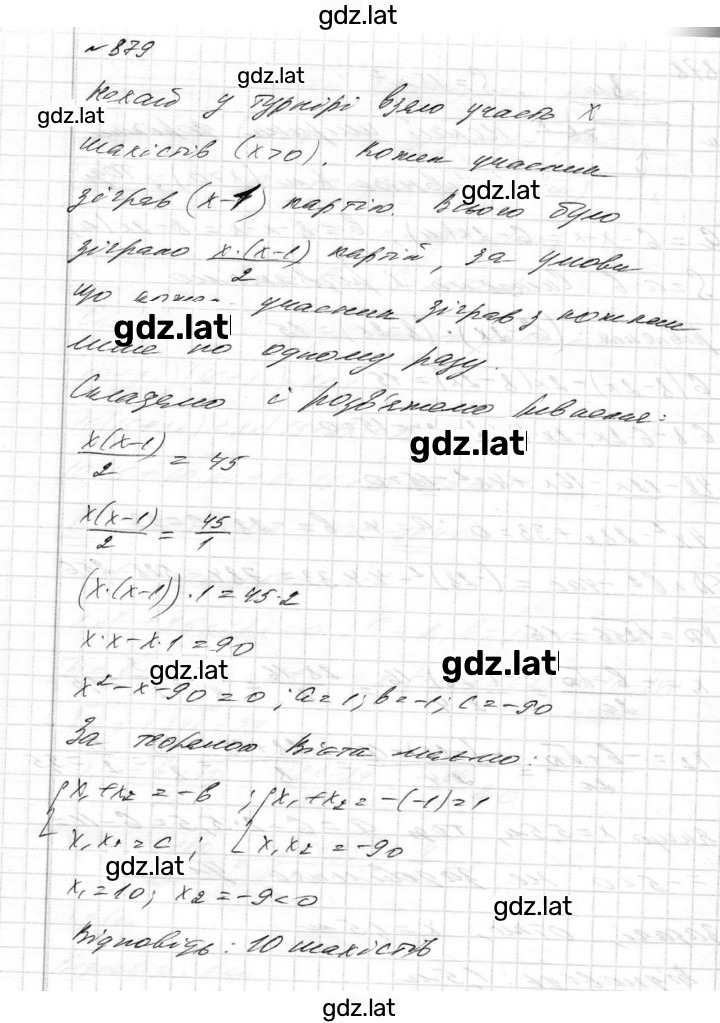 gdz.lat
№ 879
gdz.lat
Нехай у турнірі взяло участь x
gdz.lat
шахістів (x>0). Кожен учасник
gdz.lat
зіграв (x-1) партію. Всього було
зіграно x·(x-1)/2 партій, за умови
що кожен учасник зіграв з кожним
gdz.lat
лише по одному разу.
Складемо і розв'яжемо рівняння:
gdz.lat
x(x-1)/2 = 45
x(x-1)/2 = 45/1
(x·(x-1))·1 = 45·2
x·x-x·1 = 90
gdz.lat
gdz.lat
x²-x-90=0; a=1; b=-1; c=-90
За теоремою Вієта маємо:
{x₁+x₂ = -b ; {x₁+x₂ = -(-1) = 1
x₁x₂ = c ; x₁x₂ = -90
gdz.lat
x₁=10; x₂=-9<0
gdz.lat
Відповідь: 10 шахістів
gdz.lat